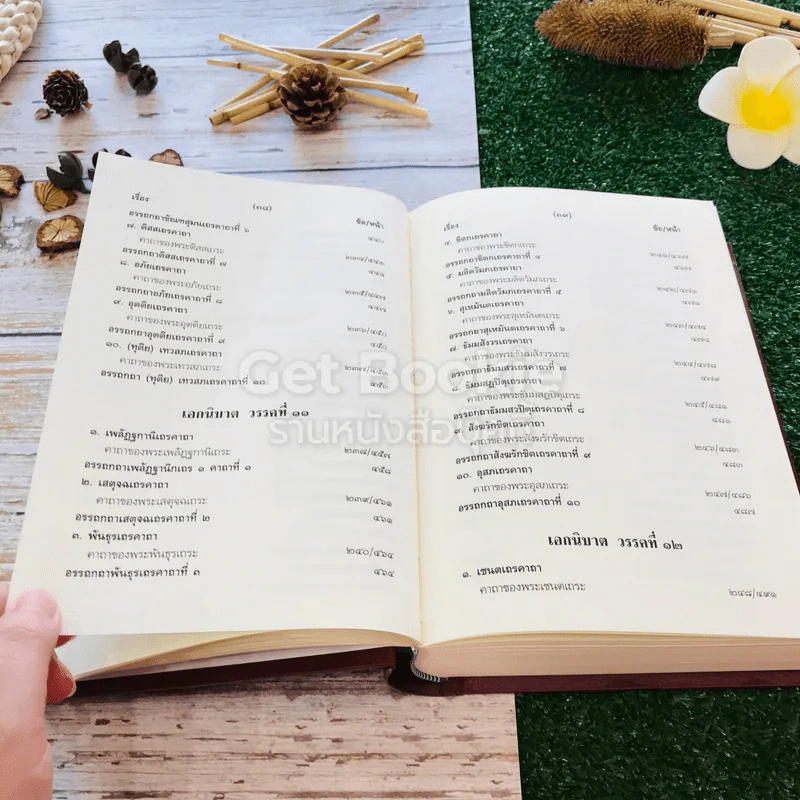 เรื่อง (๓๘) ข้อ/หน้า
อรรถกถาขัณฑสุมนเถรคาถาที่ ๖ ๔๔๑
๗. ติสสเถรคาถา
คาถาของพระติสสเถระ ๒๓๔/๔๔๔
อรรถกถาติสสเถรคาถาที่ ๗ ๔๔๔
๘. อภัยเถรคาถา
คาถาของพระอภัยเถระ ๒๓๕/๔๔๗
อรรถกถาอภัยเถรคาถาที่ ๘ ๔๔๗
๙. อุตติยเถรคาถา
คาถาของพระอุตติยเถระ ๒๓๖/๔๕๐
อรรถกถาอุตติยเถรคาถาที่ ๙ ๔๕๐
๑๐. (ทุติย) เทวสภเถรคาถา
คาถาของพระเทวสภเถระ ๒๓๗/๔๕๓
อรรถกถา (ทุติย) เทวสภเถรคาถาที่ ๑๐ ๔๕๓
เอกนิบาต วรรคที่ ๑๑
๑. เพลัฏฐกานิเถรคาถา
คาถาของพระเพลัฏฐกานิเถระ ๒๓๘/๔๕๗
อรรถกถาเพลัฏฐานิกเถร ๑ คาถาที่ ๑ ๔๕๘
๒. เสตุจฉเถรคาถา
คาถาของพระเสตุจฉเถระ ๒๓๙/๔๖๑
อรรถกถาเสตุจฉเถรคาถาที่ ๒ ๔๖๑
๓. พันธุรเถรคาถา
คาถาของพระพันธุรเถระ ๒๔๐/๔๖๔
อรรถกถาพันธุรเถรคาถาที่ ๓ ๔๖๔
เรื่อง (๓๙) ข้อ/หน้า
๔. ขิตกเถรคาถา
คาถาของพระขิตกเถระ ๒๔๑/๔๖๗
อรรถกถาขิตกเถรคาถาที่ ๔ ๔๖๗
๕. มลิตวัมภเถรคาถา
คาถาของพระมลิตวัมภเถระ ๒๔๒/๔๗๑
อรรถกถามลิตวัมภเถรคาถาที่ ๕ ๔๗๑
๖. สุเหมันตเถรคาถา
คาถาของพระสุเหมันตเถระ ๒๔๓/๔๗๔
อรรถกถาสุเหมันตเถรคาถาที่ ๖ ๔๗๔
๗. ธัมมสังวรเถรคาถา
คาถาของพระธัมมสังวรเถระ ๒๔๔/๔๗๘
อรรถกถาธัมมสวรเถรคาถาที่ ๗ ๔๗๘
๘. ธัมมสฏปิตุเถรคาถา
คาถาของพระธัมมสฏปิตุเถระ ๒๔๕/๔๘๑
อรรถกถาธัมมสวปิตุเถรคาถาที่ ๘ ๔๘๑
๙. สังฆรักขิตเถรคาถา
คาถาของพระสังฆรักขิตเถระ ๒๔๖/๔๘๓
อรรถกถาสังฆรักขิตเถรคาถาที่ ๙ ๔๘๓
๑๐. อุสภเถรคาถา
คาถาของพระอุสภเถระ ๒๔๗/๔๘๖
อรรถกถาอุสภเถรคาถาที่ ๑๐ ๔๘๗
เอกนิบาต วรรคที่ ๑๒
๑. เชนตเถรคาถา
คาถาของพระเชนตเถระ ๒๔๘/๔๙๑
Get Boo
ร้านหนังสือ